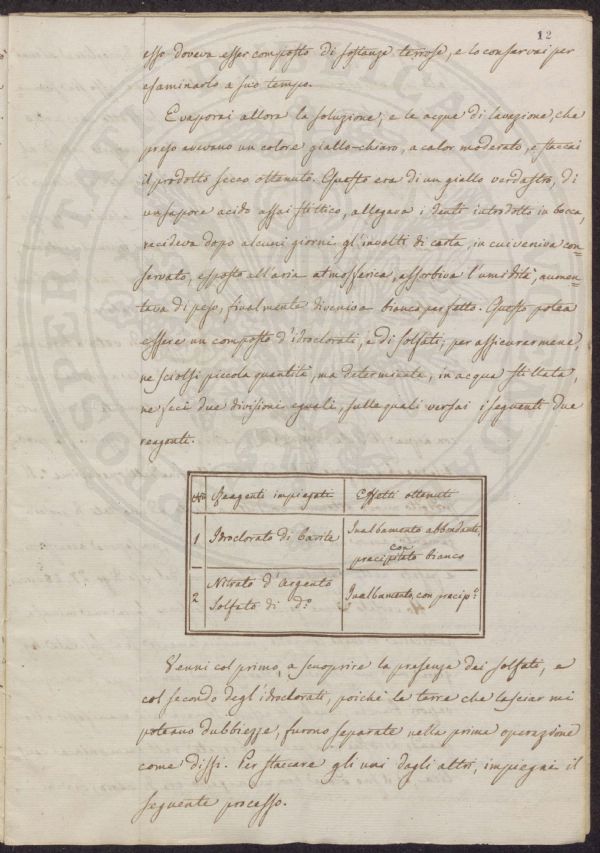 12
esso doveva esser composto di sostanze terrose, e lo conservai per
esaminarlo a suo tempo.
Evaporai allora la soluzione, e le acque di lavazione, che
preso avevano un colore giallo-chiaro, a calor moderato, e staccai
il prodotto secco ottenuto. Questo era di un giallo verdastro, di
un sapore acido assai stittico, allegava i denti introdotto in bocca,
recideva dopo alcuni giorni gl'involti di carta, in cui veniva con=
servato, esposto all'aria atmosferica, assorbiva l'umidità, aumen=
tava di peso, finalmente diveniva bianco perfetto. Questo potea
essere un composto d'idroclorati, e di solfati; per assicurarmene,
ne sciolsi piccola quantità, ma determinata, in acqua stillata,
ne feci due divisioni eguali, sulle quali versai i seguenti due
reagenti.
No Reagenti impiegati Effetti ottenuti
1 Idroclorato di barite Inalbamento abbondante,
con
precipitato bianco
2 Nitrato d'Argento Inalbamento, con precip.o
Solfato di d.o
Venni col primo, a scuoprire la presenza dei solfati, e
col secondo degl'idroclorati, poichè le terre che lasciar mi
poteano dubbiezze, furono separate nella prima operazione
come dissi. Per staccare gli uni dagli altri, impiegai il
seguente processo.
PROSPERITATI